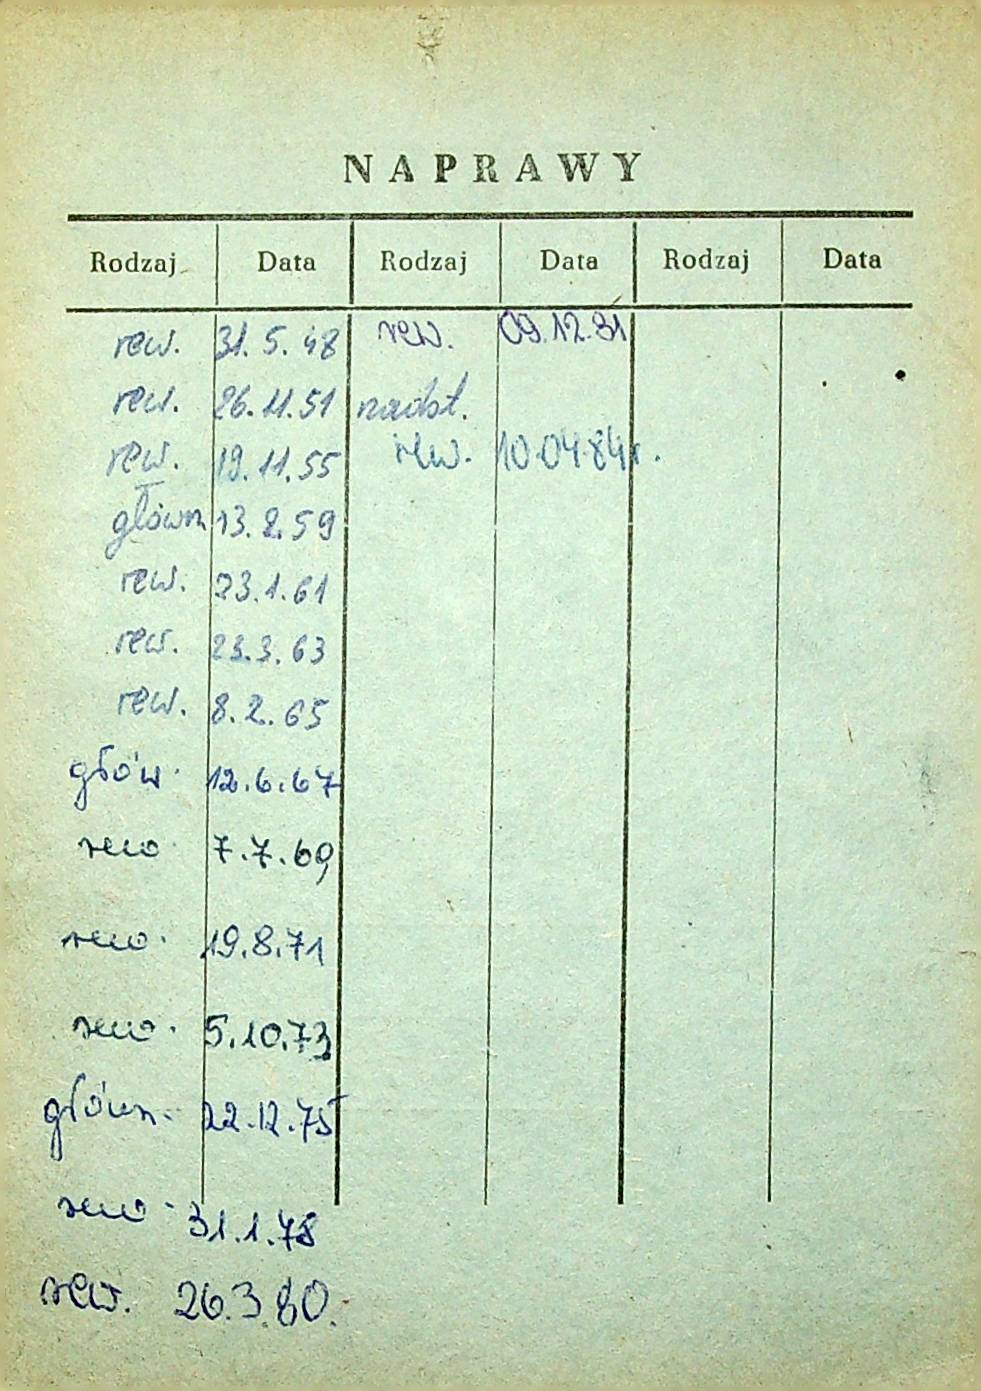 NAPRAWY
Rodzaj Data Rodzaj Data Rodzaj Data
rew. 31. 5. 48 rew. 09.12.81
rew. 26.11.51 nadst.
rew. 19.11.55 rew. 10.04.84r.
główn 13.2.59
rew. 23.1.61
rew. 23.3.63
rew. 8.2.65
głów. 12.6.67
rew. 7.7.69
rew. 19.8.71
rew. 5.10.73
główn. 22.12.75
rew. 31.1.78
rew. 26.3.80.